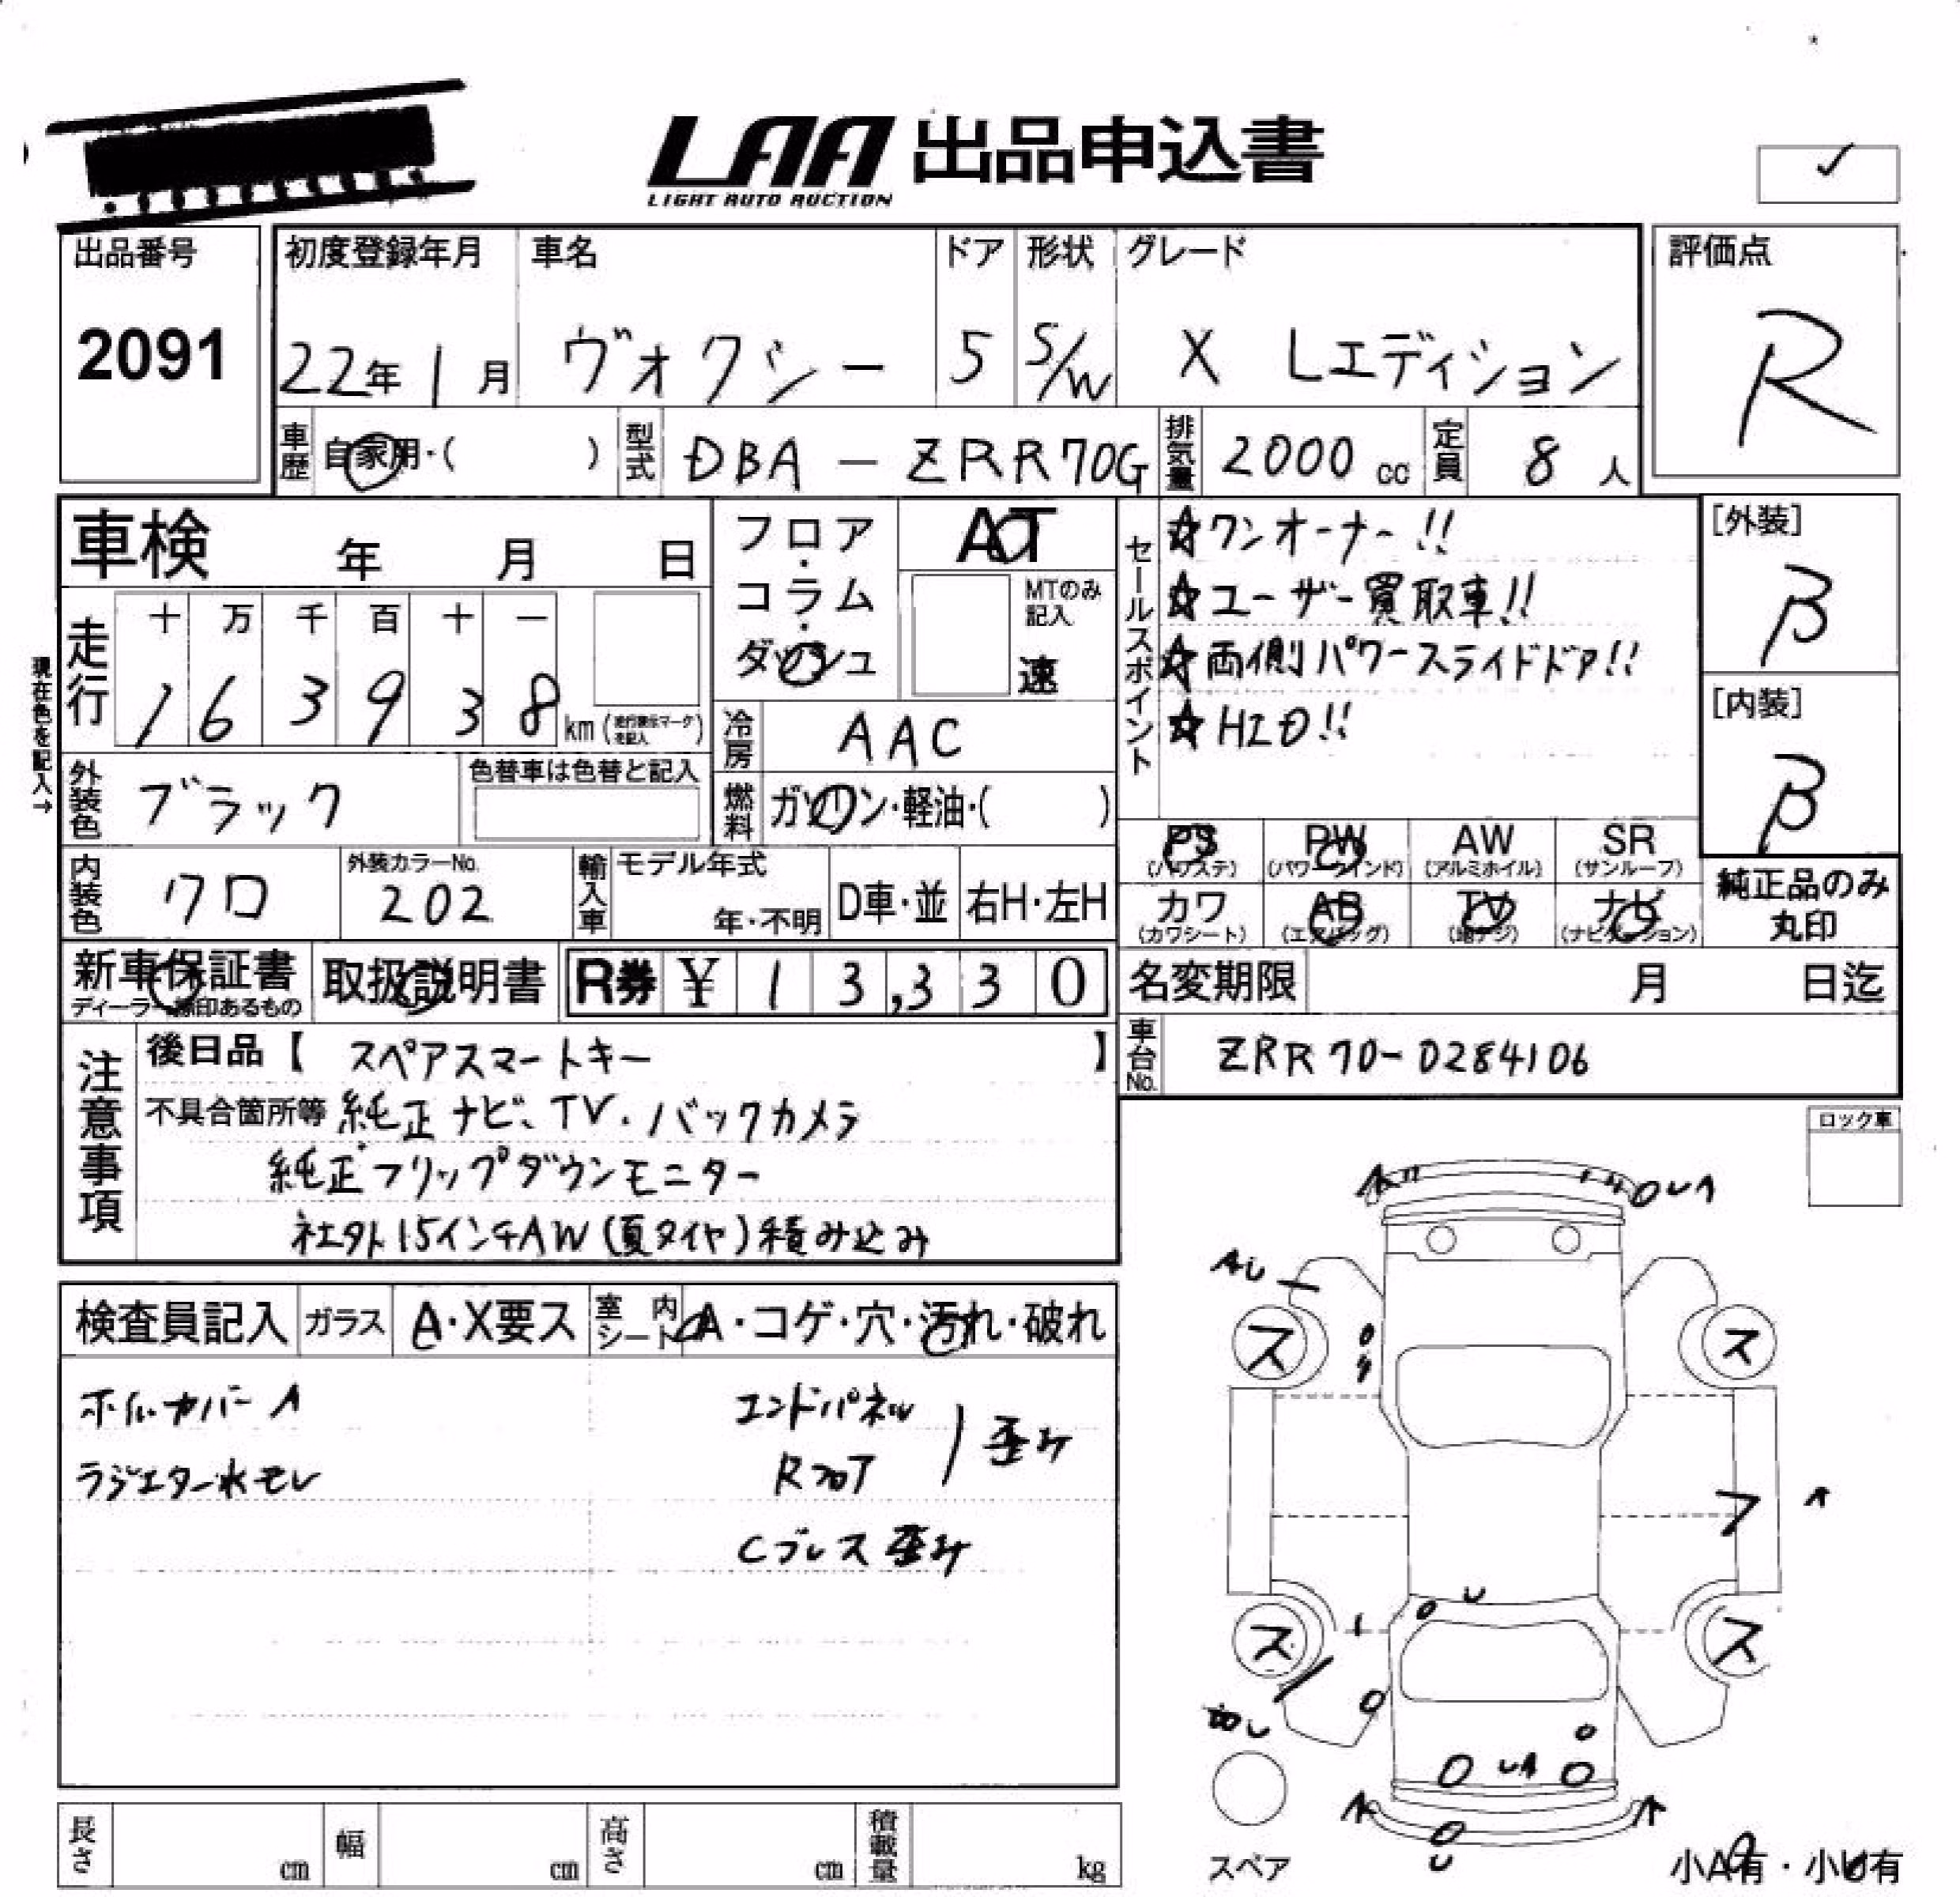 LAA 出品申込書
LIGHT AUTO AUCTION
出品番号
2091
初度登録年月
22年 1月
車名
ヴォクシー
ドア
5
形状
S/W
グレード
X Lエディション
評価点
R
車歴 自家用・( )
型式 DBA-ZRR70G
排気量 2000 cc
定員 8 人
車検 年 月 日
フロア・コラム・ダッシュ
AT
MTのみ記入
速
セールスポイント
☆ワンオーナー!!
☆ユーザー買取車!!
☆両側パワースライドドア!!
☆H20!!
[外装]
β
[内装]
β
現在色を記入→
走行 十 万 千 百 十 一
1 6 3 9 3 8 km
冷房 AAC
燃料 ガソリン・軽油・( )
外装色 ブラック
色替車は色替と記入
PS (パワステ)
PW (パワーウインド)
AW (アルミホイル)
SR (サンルーフ)
カワ (カワシート)
AB (エアバッグ)
TV (地デジ)
ナビ (ナビゲーション)
純正品のみ丸印
内装色 クロ
外装カラーNo.
202
輸入車
モデル年式
年・不明
D車・並
右H・左H
新車保証書
ディーラー標印あるもの
取扱説明書
R券 ¥ 1 3,3 3 0
名変期限 月 日迄
車台No. ZRR70-0284106
注意事項
後日品【 スペアスマートキー 】
不具合箇所等 純正ナビ、TV、バックカメラ
純正フリップダウンモニター
社外15インチAW(夏タイヤ)積み込み
ロック車
検査員記入
ガラス A・X要ス
室内シート A・コゲ・穴・汚れ・破れ
ホイルカバーA
ラジエター水モレ
エンドパネル
Rフロア
歪み
Cブレス歪み
AU
ス
ス
ス
ス
スペア
小A有・小U有
長さ cm
幅 cm
高さ cm
積載量 kg